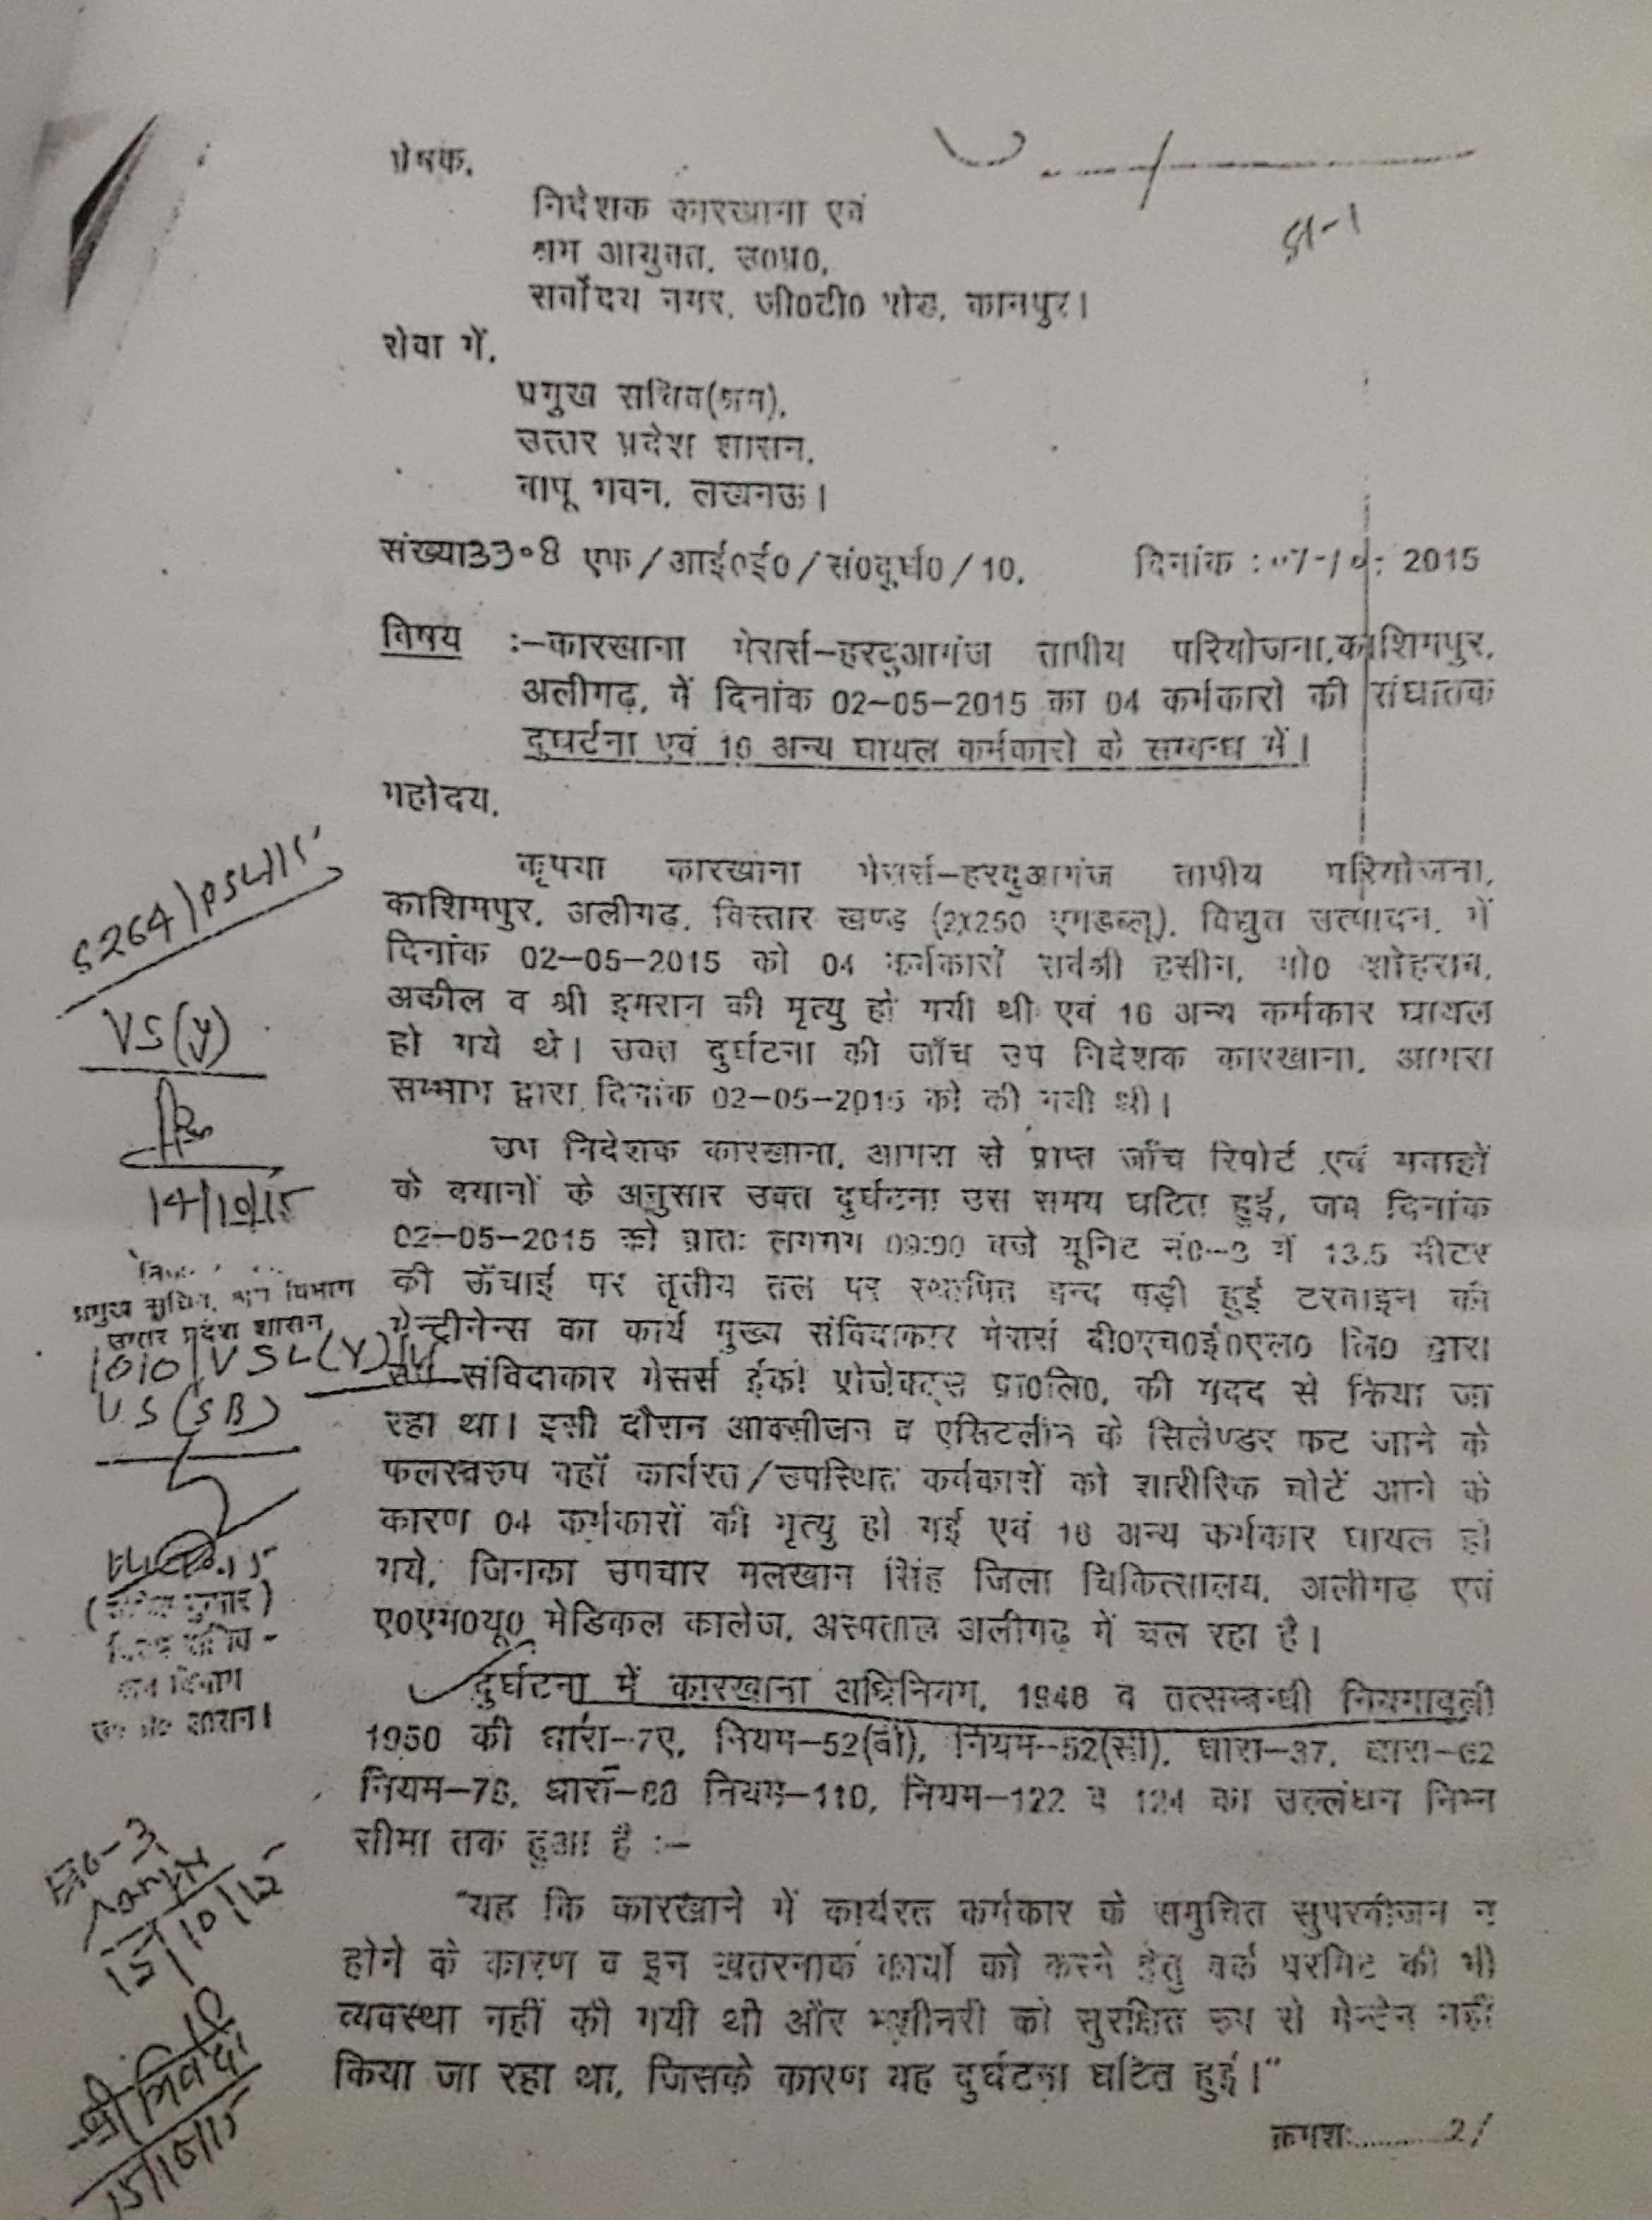 प्रेषक,
निदेशक कारखाना एवं
श्रम आयुक्त, उ०प्र०,
सर्वोदय नगर, जी०टी० रोड, कानपुर।
सेवा में,
प्रमुख सचिव(श्रम),
उत्तर प्रदेश शासन,
बापू भवन, लखनऊ।
संख्या 3308 एफ/आई०ई०/सं०दुर्घ०/10, दिनांक : 2015
विषय :–कारखाना मेसर्स–हरदुआगंज तापीय परियोजना,काशिमपुर,
अलीगढ़, में दिनांक 02–05–2015 का 04 कर्मकारो की संघातक
दुघर्टना एवं 16 अन्य घायल कर्मकारो के सम्बन्ध में।
महोदय,
कृपया कारखाना मेसर्स–हरदुआगंज तापीय परियोजना,
काशिमपुर, अलीगढ़, विस्तार खण्ड (2x250 एमडब्लू), विद्युत उत्पादन, में
दिनांक 02–05–2015 को 04 कर्मकारों सर्वश्री हसीन, मो० शोहराब,
अकील व श्री इमरान की मृत्यु हो गयी थी एवं 16 अन्य कर्मकार घायल
हो गये थे। उक्त दुर्घटना की जॉंच उप निदेशक कारखाना, आगरा
सम्भाग द्वारा दिनांक 02–05–2015 को की गयी थी।
उप निदेशक कारखाना, आगरा से प्राप्त जॉंच रिपोर्ट एवं गवाहों
के बयानों के अनुसार उक्त दुर्घटना उस समय घटित हुई, जब दिनांक
02–05–2015 को प्रातः लगभग 09:00 बजे यूनिट नं०–8 में 13.5 मीटर
की ऊँचाई पर तृतीय तल पर स्थापित बन्द पड़ी हुई टरबाइन की
मेन्ट्रीनेन्स का कार्य मुख्य संविदाकार मेसर्स बी०एच०ई०एल० लि० द्वारा
उप संविदाकार मेसर्स ईको प्रोजेक्ट्स प्रा०लि०, की मदद से किया जा
रहा था। इसी दौरान आक्सीजन व एसिटलीन के सिलेण्डर फट जाने के
फलस्वरुप वहॉं कार्यरत/उपस्थित कर्मकारों को शारीरिक चोटें आने के
कारण 04 कर्मकारों की मृत्यु हो गई एवं 16 अन्य कर्मकार घायल हो
गये, जिनका उपचार मलखान सिंह जिला चिकित्सालय, अलीगढ एवं
ए०एम०यू० मेडिकल कालेज, अस्पताल अलीगढ़ में चल रहा है।
दुर्घटना में कारखाना अधिनियम, 1948 व तत्सम्बन्धी नियमावली
1950 की धारा–7ए, नियम–52(बी), नियम–52(सी), धारा–37, धारा–62
नियम–78, धारा–88 नियम–110, नियम–122 व 124 का उल्लंघन निम्न
सीमा तक हुआ है :–
"यह कि कारखाने में कार्यरत कर्मकार के समुचित सुपरवीजन न
होने के कारण व इन खतरनाक कार्यो को करने हेतु वर्क परमिट की भी
व्यवस्था नहीं की गयी थी और मशीनरी को सुरक्षित रुप से मेन्टेन नहीं
किया जा रहा था, जिसके कारण यह दुर्घटना घटित हुई।"
क्रमशः.........2/
5264/PSL/15
VS(Y)
14/10/15
प्रमुख सचिव, श्रम विभाग
उत्तर प्रदेश शासन
1010/VSL(Y)
VS(SB)
श्रम विभाग
शासन।
15/10/15
श्री त्रिवेदी
15/10/15